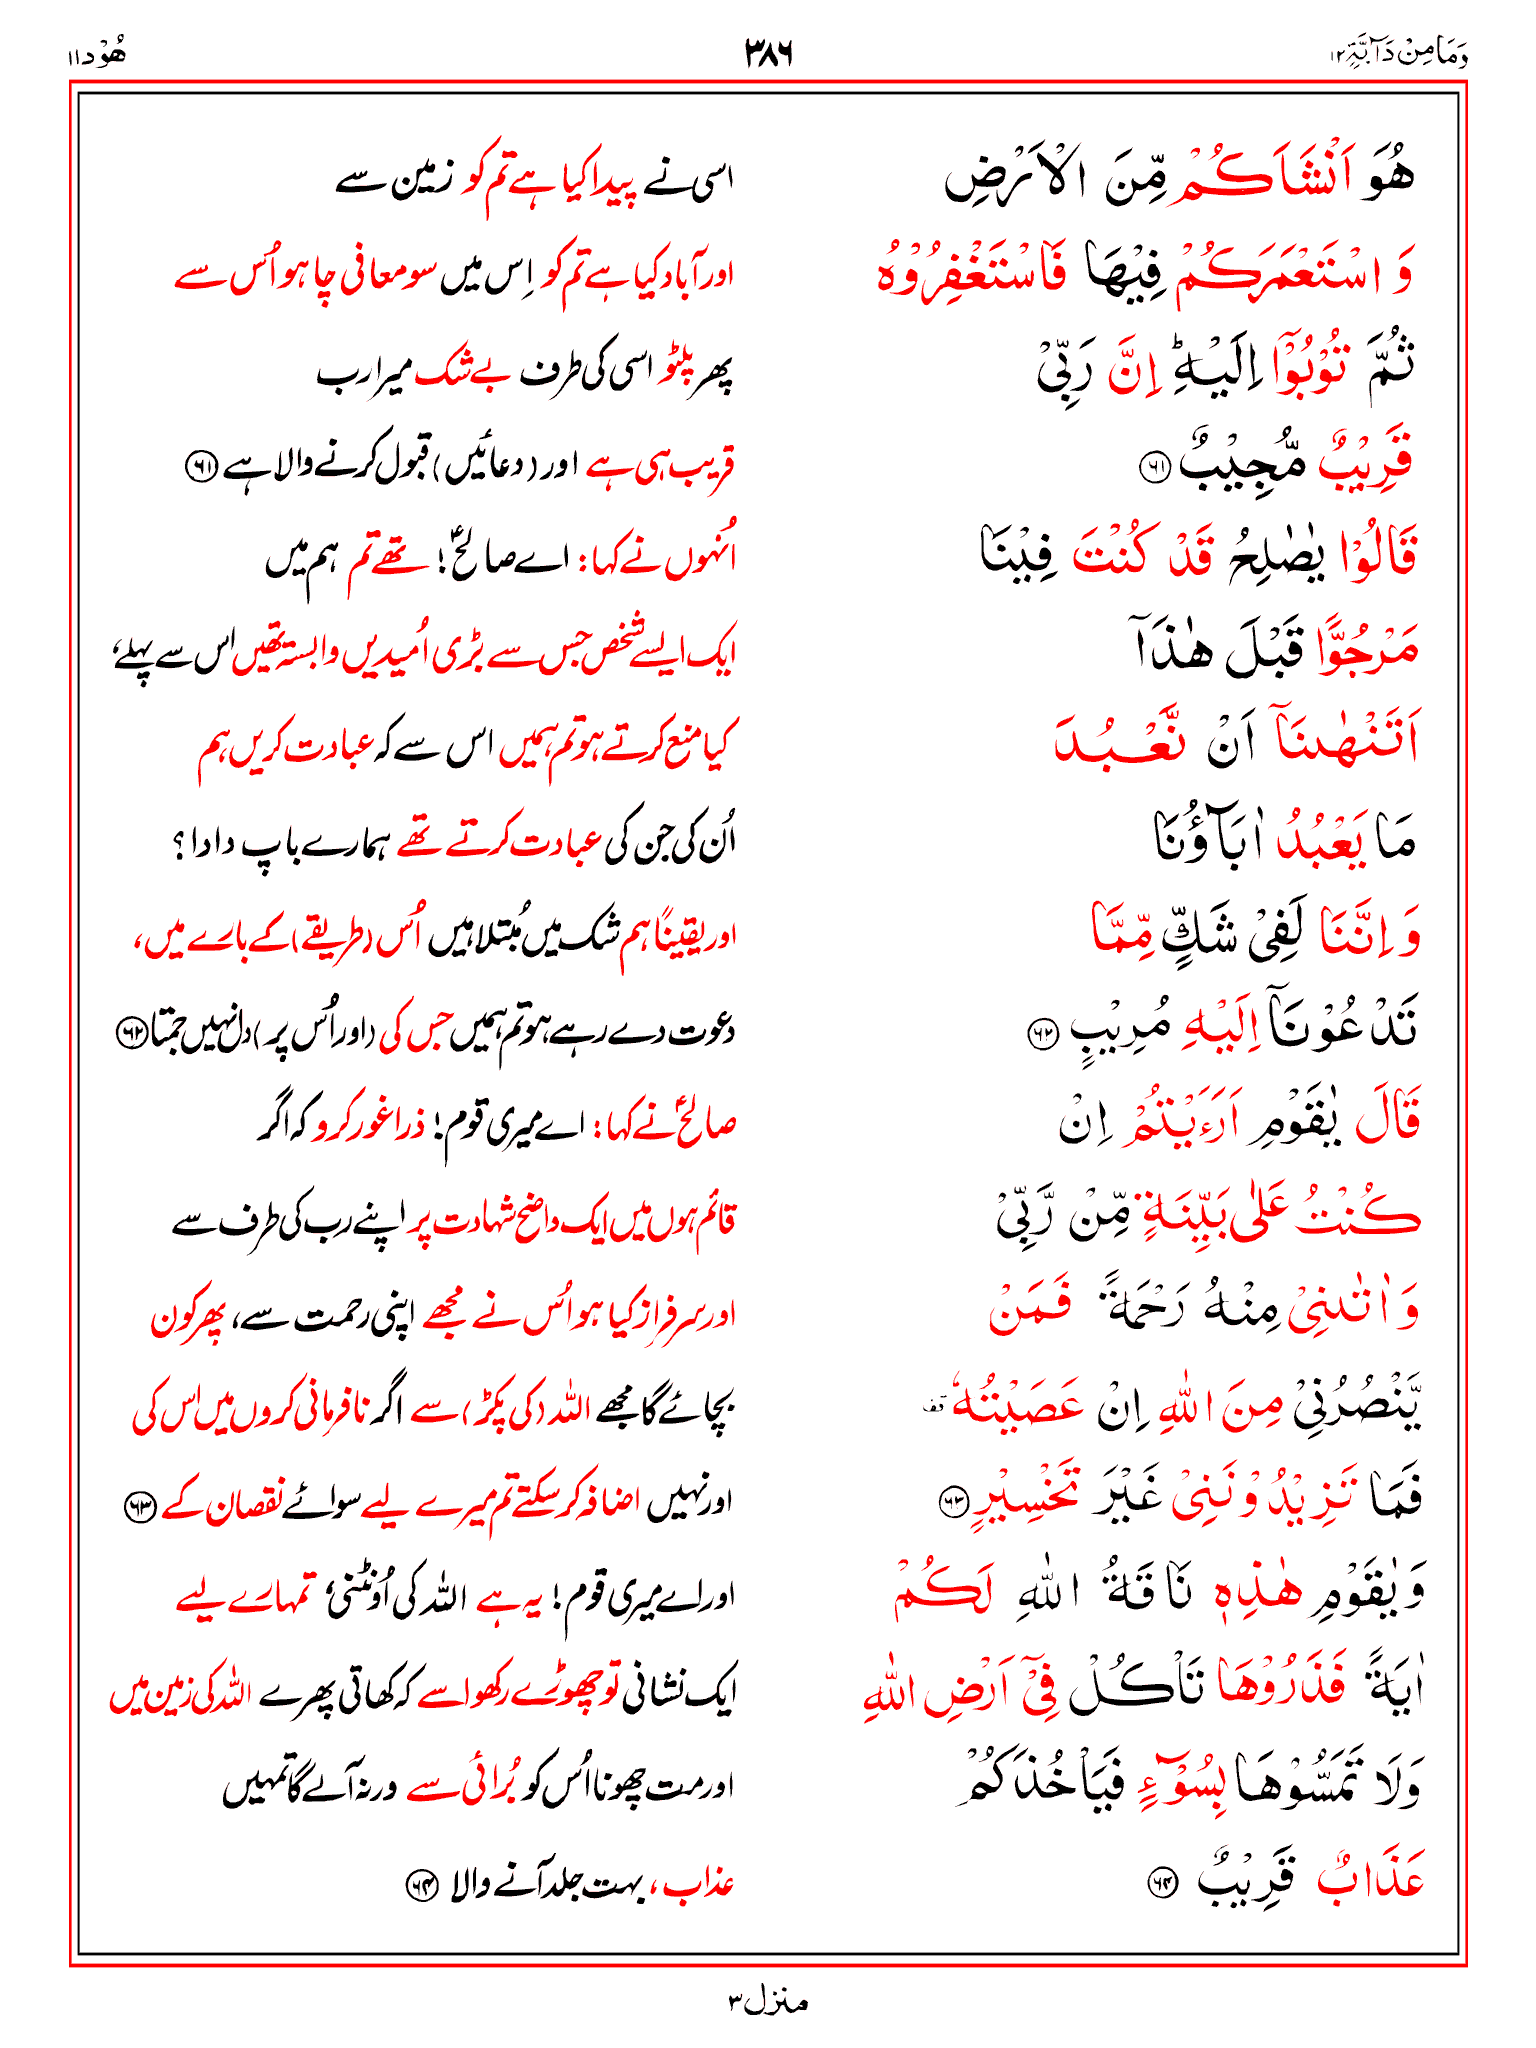 وَمَا مِنْ دَآبَّةٍ ۱۲
۳۸۶
هُوْد ۱۱
هُوَ اَنْشَاَكُمْ مِّنَ الْاَرْضِ
اسی نے پیدا کیا ہے تم کو زمین سے
وَ اسْتَعْمَرَكُمْ فِيْهَا فَاسْتَغْفِرُوْهُ
اور آباد کیا ہے تم کو اِس میں سو معافی چاہو اُس سے
ثُمَّ تُوْبُوْٓا اِلَيْهِ ؕ اِنَّ رَبِّيْ
پھر پلٹو اسی کی طرف بے شک میرا رب
قَرِيْبٌ مُّجِيْبٌ ۶۱
قریب ہی ہے اور (دعائیں) قبول کرنے والا ہے ۶۱
قَالُوْا يٰصٰلِحُ قَدْ كُنْتَ فِيْنَا
اُنہوں نے کہا: اے صالحؑ! تھے تم ہم میں
مَرْجُوًّا قَبْلَ هٰذَآ
ایک ایسے شخص جس سے بڑی اُمیدیں وابستہ تھیں اس سے پہلے،
اَتَنْهٰىنَآ اَنْ نَّعْبُدَ
کیا منع کرتے ہو تم ہمیں اس سے کہ عبادت کریں ہم
مَا يَعْبُدُ اٰبَآؤُنَا
اُن کی جن کی عبادت کرتے تھے ہمارے باپ دادا؟
وَ اِنَّنَا لَفِيْ شَكٍّ مِّمَّا
اور یقیناً ہم شک میں مُبتلا ہیں اُس (طریقے) کے بارے میں،
تَدْعُوْنَآ اِلَيْهِ مُرِيْبٍ ۶۲
دعوت دے رہے ہو تم ہمیں جس کی (اور اُس پر) دل نہیں جمتا ۶۲
قَالَ يٰقَوْمِ اَرَءَيْتُمْ اِنْ
صالحؑ نے کہا: اے میری قوم! ذرا غور کرو کہ اگر
كُنْتُ عَلٰى بَيِّنَةٍ مِّنْ رَّبِّيْ
قائم ہوں میں ایک واضح شہادت پر اپنے رب کی طرف سے
وَ اٰتٰىنِيْ مِنْهُ رَحْمَةً فَمَنْ
اور سرفراز کیا ہو اُس نے مجھے اپنی رحمت سے، پھر کون
يَّنْصُرُنِيْ مِنَ اللّٰهِ اِنْ عَصَيْتُهٗ قف
بچائے گا مجھے اللہ (کی پکڑ) سے اگر نافرمانی کروں میں اس کی
فَمَا تَزِيْدُوْنَنِيْ غَيْرَ تَخْسِيْرٍ ۶۳
اور نہیں اضافہ کر سکتے تم میرے لیے سوائے نقصان کے ۶۳
وَ يٰقَوْمِ هٰذِهٖ نَاقَةُ اللّٰهِ لَكُمْ
اور اے میری قوم! یہ ہے اللہ کی اُونٹنی، تمہارے لیے
اٰيَةً فَذَرُوْهَا تَاْكُلْ فِيْٓ اَرْضِ اللّٰهِ
ایک نشانی تو چھوڑے رکھو اسے کہ کھاتی پھرے اللہ کی زمین میں
وَلَا تَمَسُّوْهَا بِسُوْٓءٍ فَيَاْخُذَكُمْ
اور مت چھونا اُس کو بُرائی سے ورنہ آلے گا تمہیں
عَذَابٌ قَرِيْبٌ ۶۴
عذاب، بہت جلد آنے والا ۶۴
منزل ۳